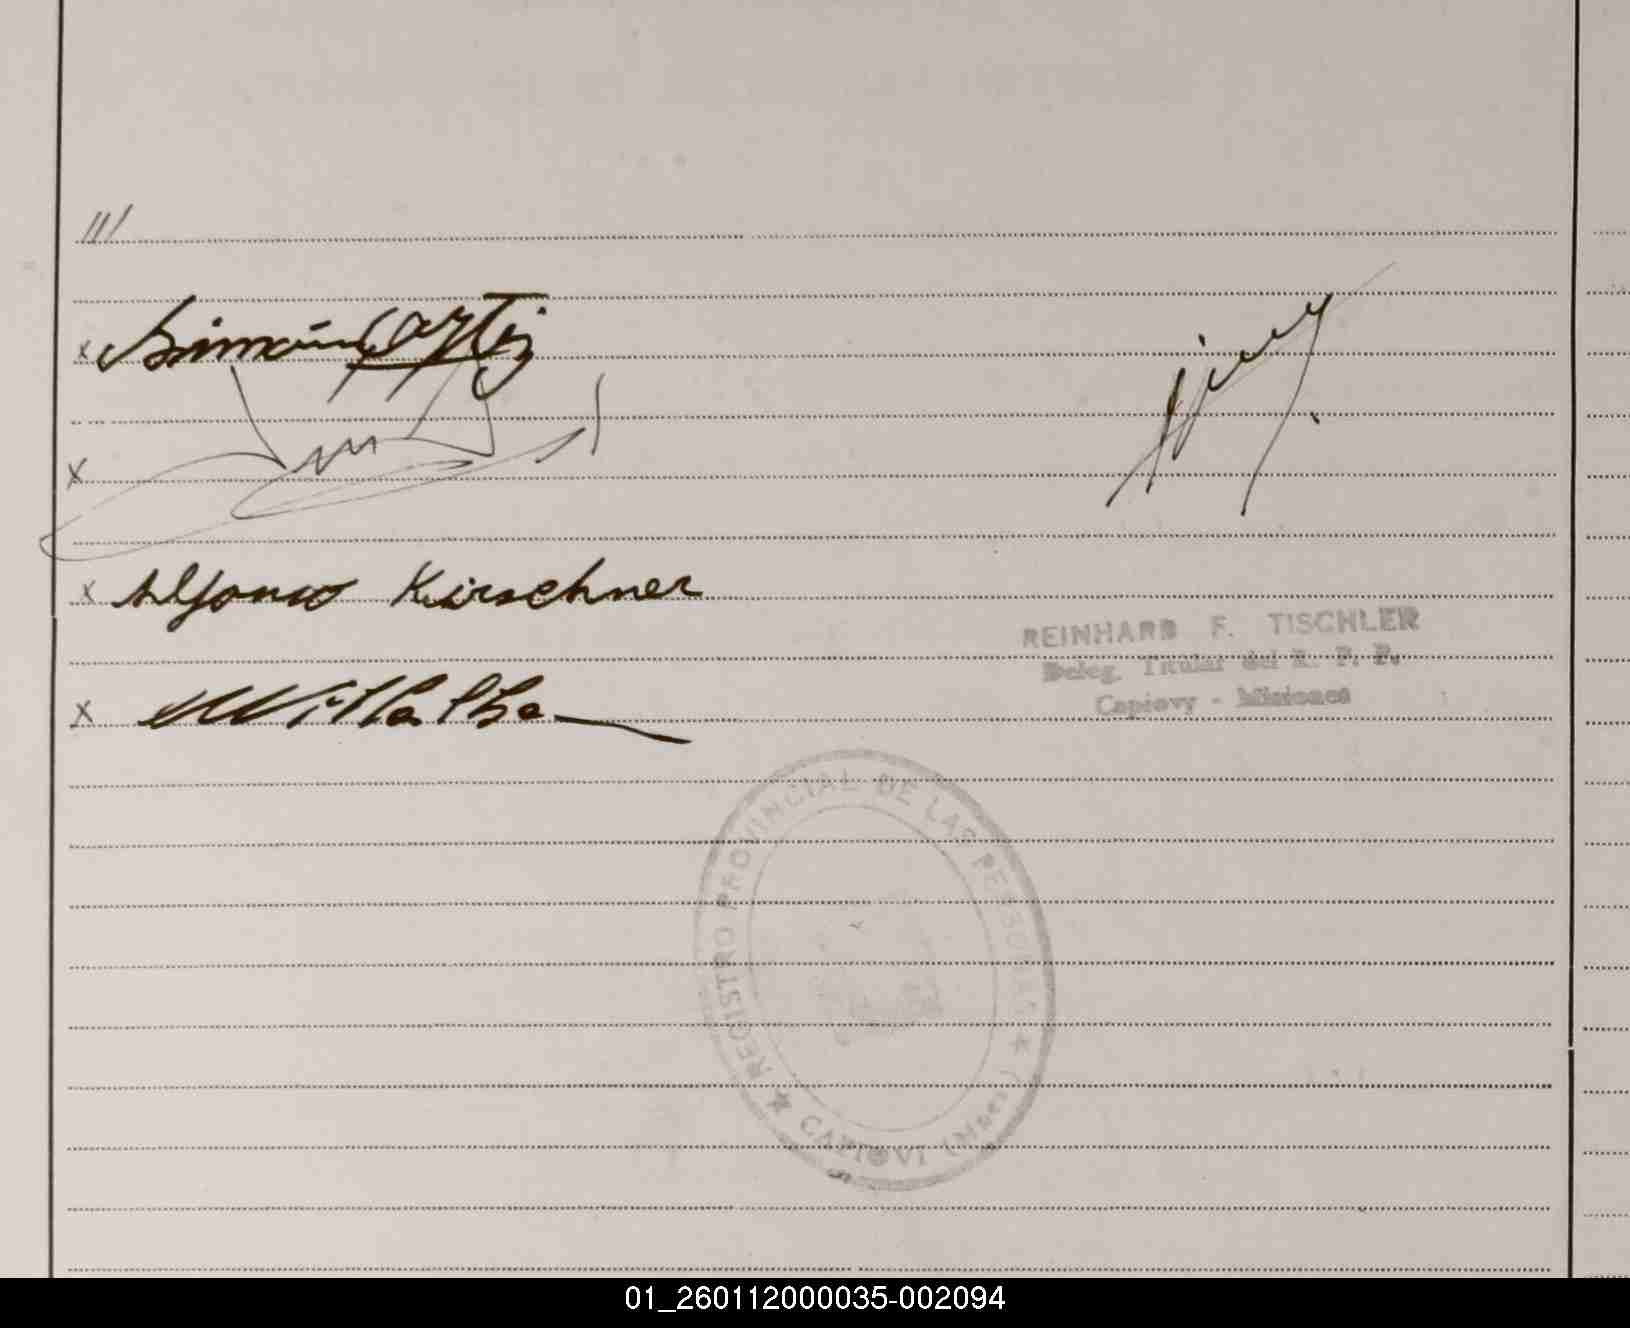 ///
x Simón
x
x Alfonso Kirschner
REINHARD F. TISCHLER
Deleg. Titular del R. P. P.
Capiovy - Misiones
x
REGISTRO PROVINCIAL DE LAS PERSONAS ★ CAPIOVI (Mnes) ★
01_260112000035-002094